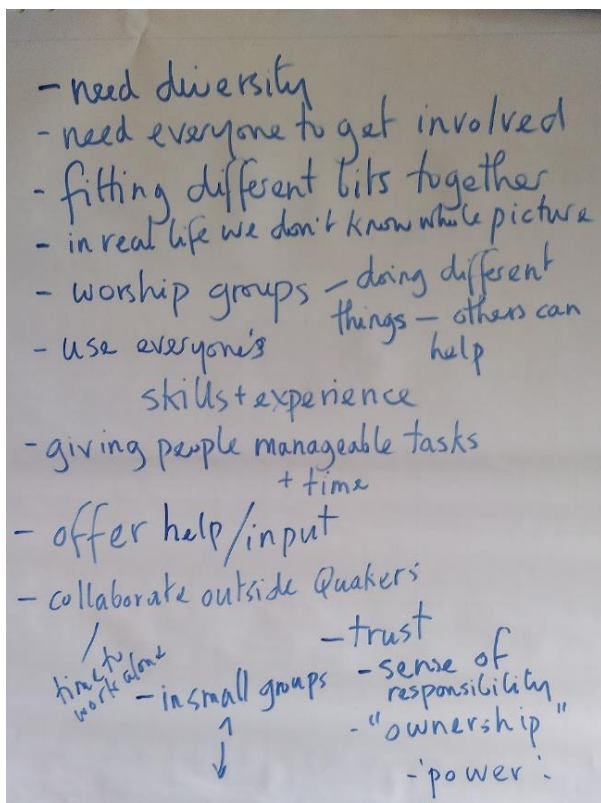 - need diversity
- need everyone to get involved
- fitting different bits together
- in real life we don't know whole picture
- worship groups – doing different
things – others can
help
- use everyone's
skills + experience
- giving people manageable tasks
+ time
- offer help/input
- collaborate outside Quakers
time to
work alone
- in small groups
- trust
- sense of
responsibility
- "ownership"
- 'power'